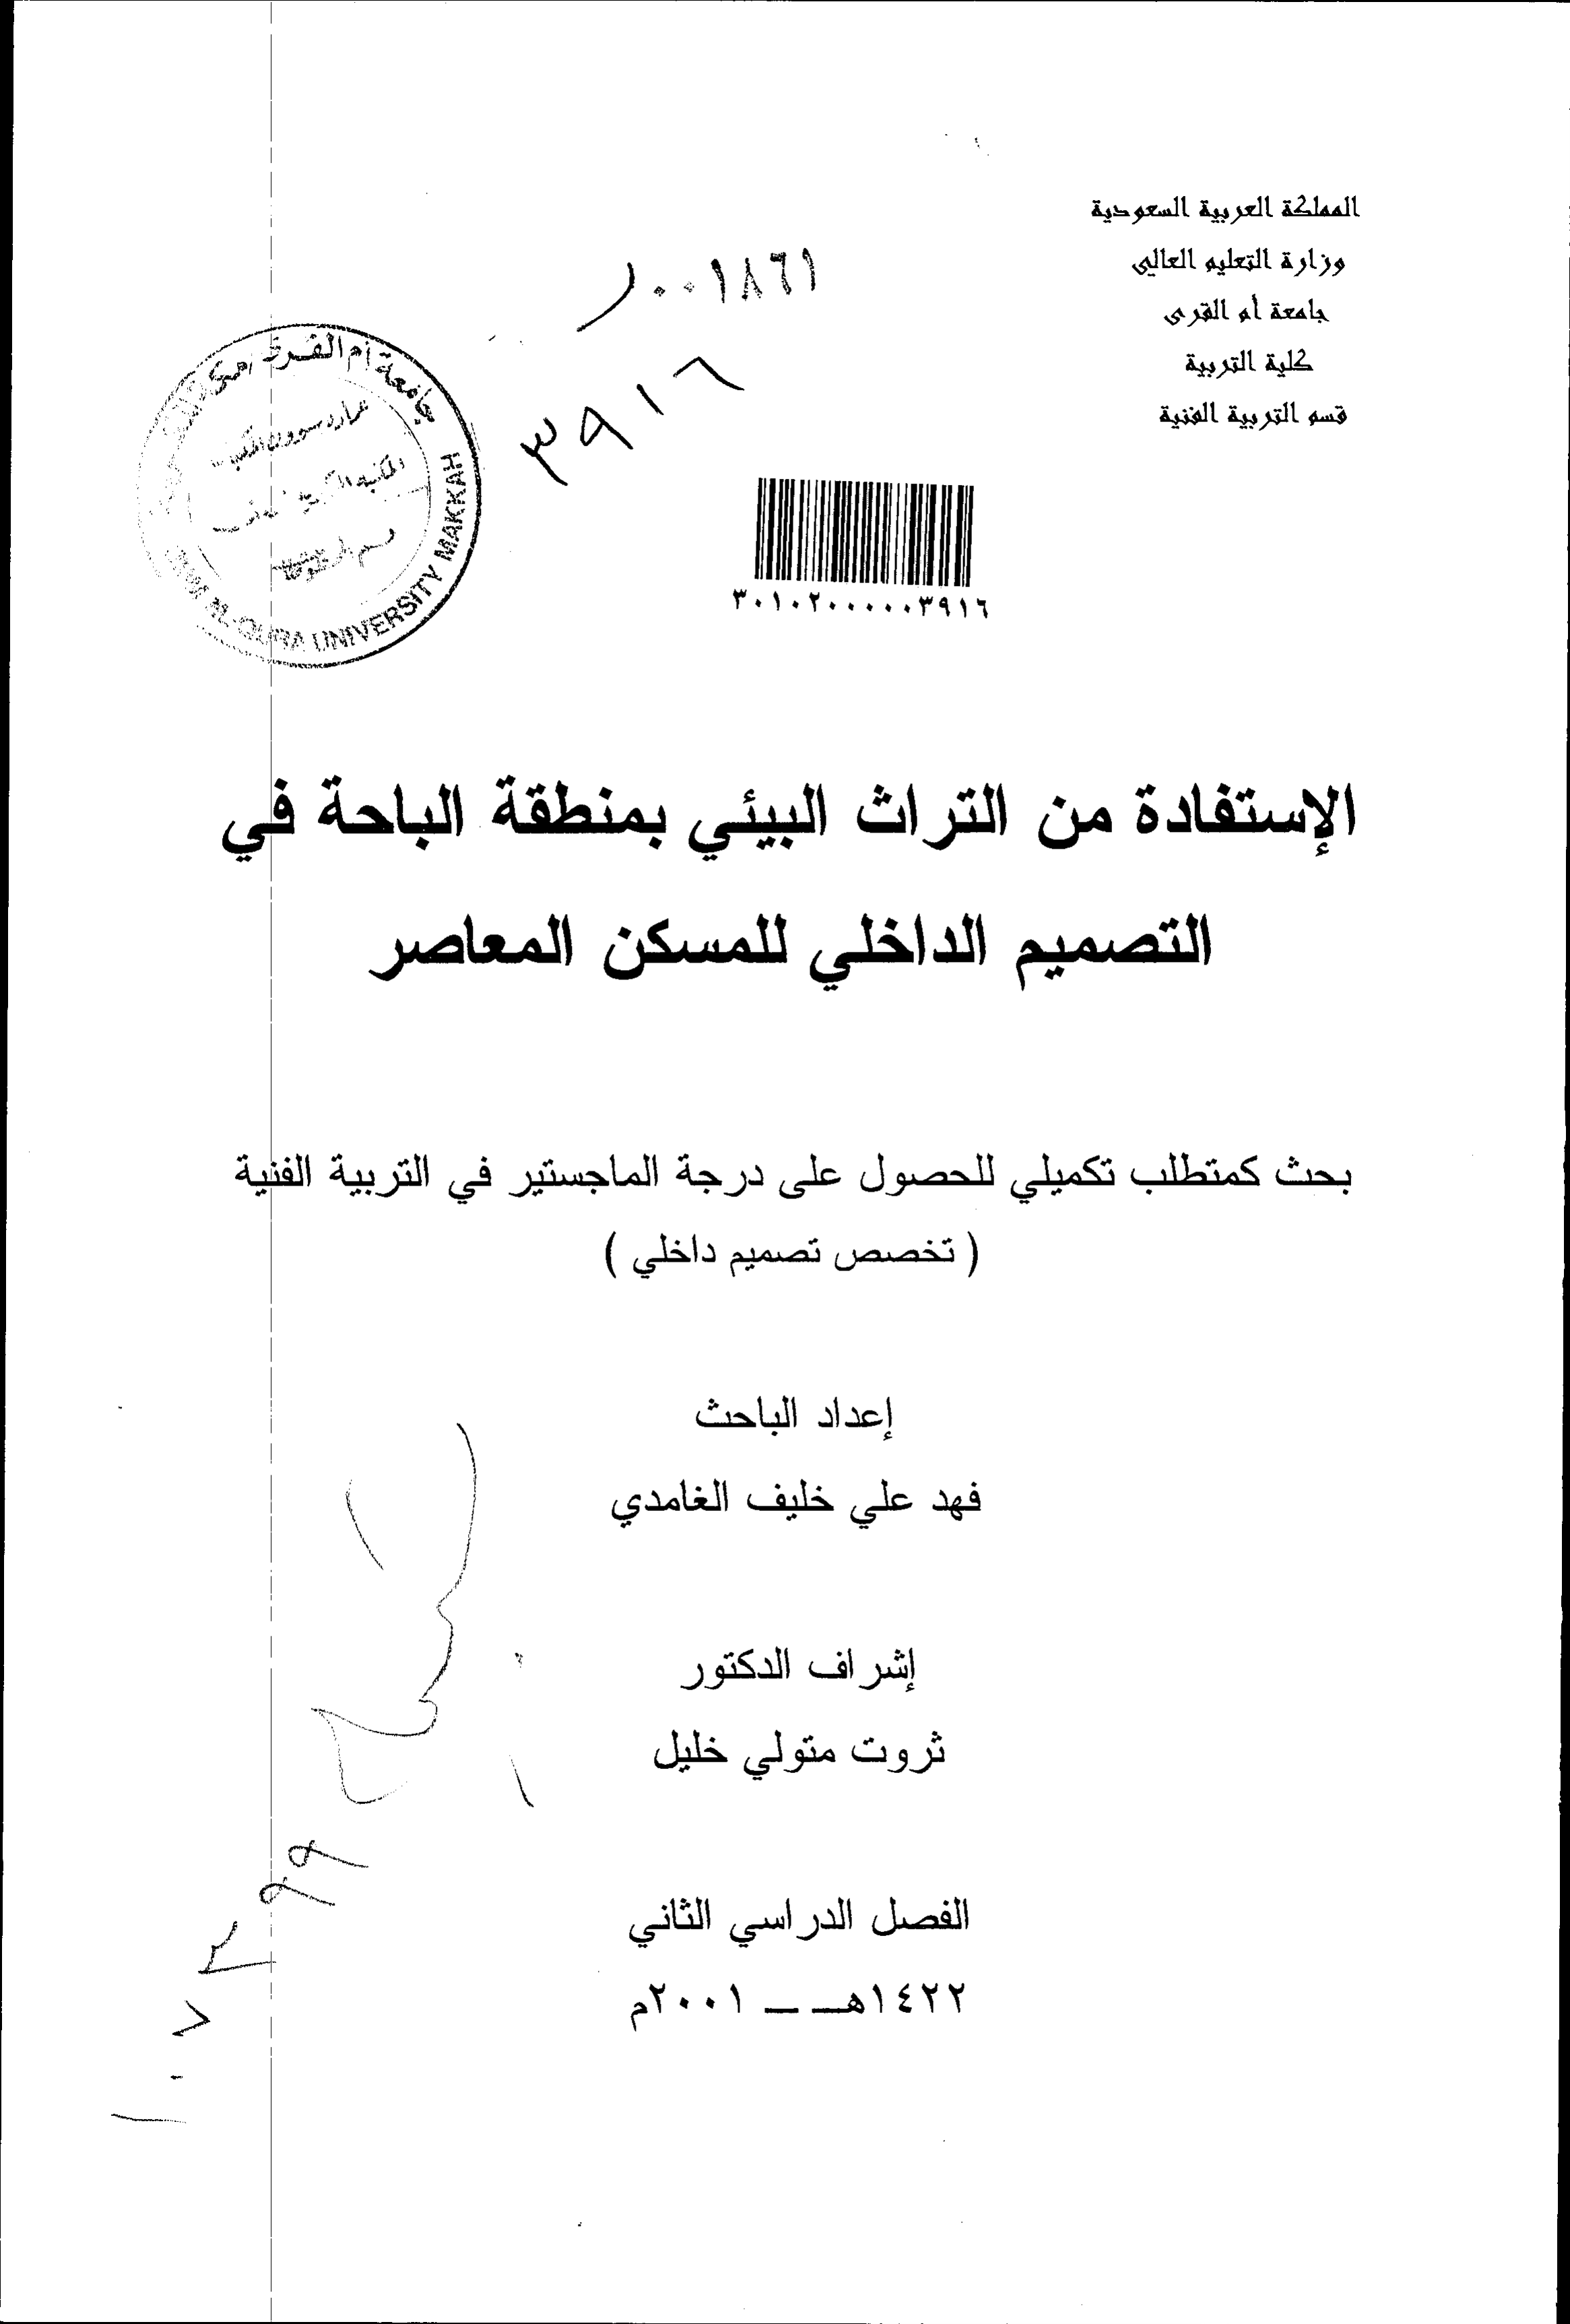 المملكة العربية السعودية
وزارة التعليم العالي
جامعة أم القرى
كلية التربية
قسم التربية الفنية
ر٠٠١٨٦١
٣٩١٦
جامعة أم القرى
UMM AL-QURA UNIVERSITY MAKKAH
٣٠١٠٢٠٠٠٠٠٣٩١٦
الإستفادة من التراث البيئي بمنطقة الباحة في
التصميم الداخلي للمسكن المعاصر
بحث كمتطلب تكميلي للحصول على درجة الماجستير في التربية الفنية
( تخصص تصميم داخلي )
إعداد الباحث
فهد علي خليف الغامدي
إشراف الدكتور
ثروت متولي خليل
الفصل الدراسي الثاني
١٤٢٢هـ ــ ٢٠٠١م